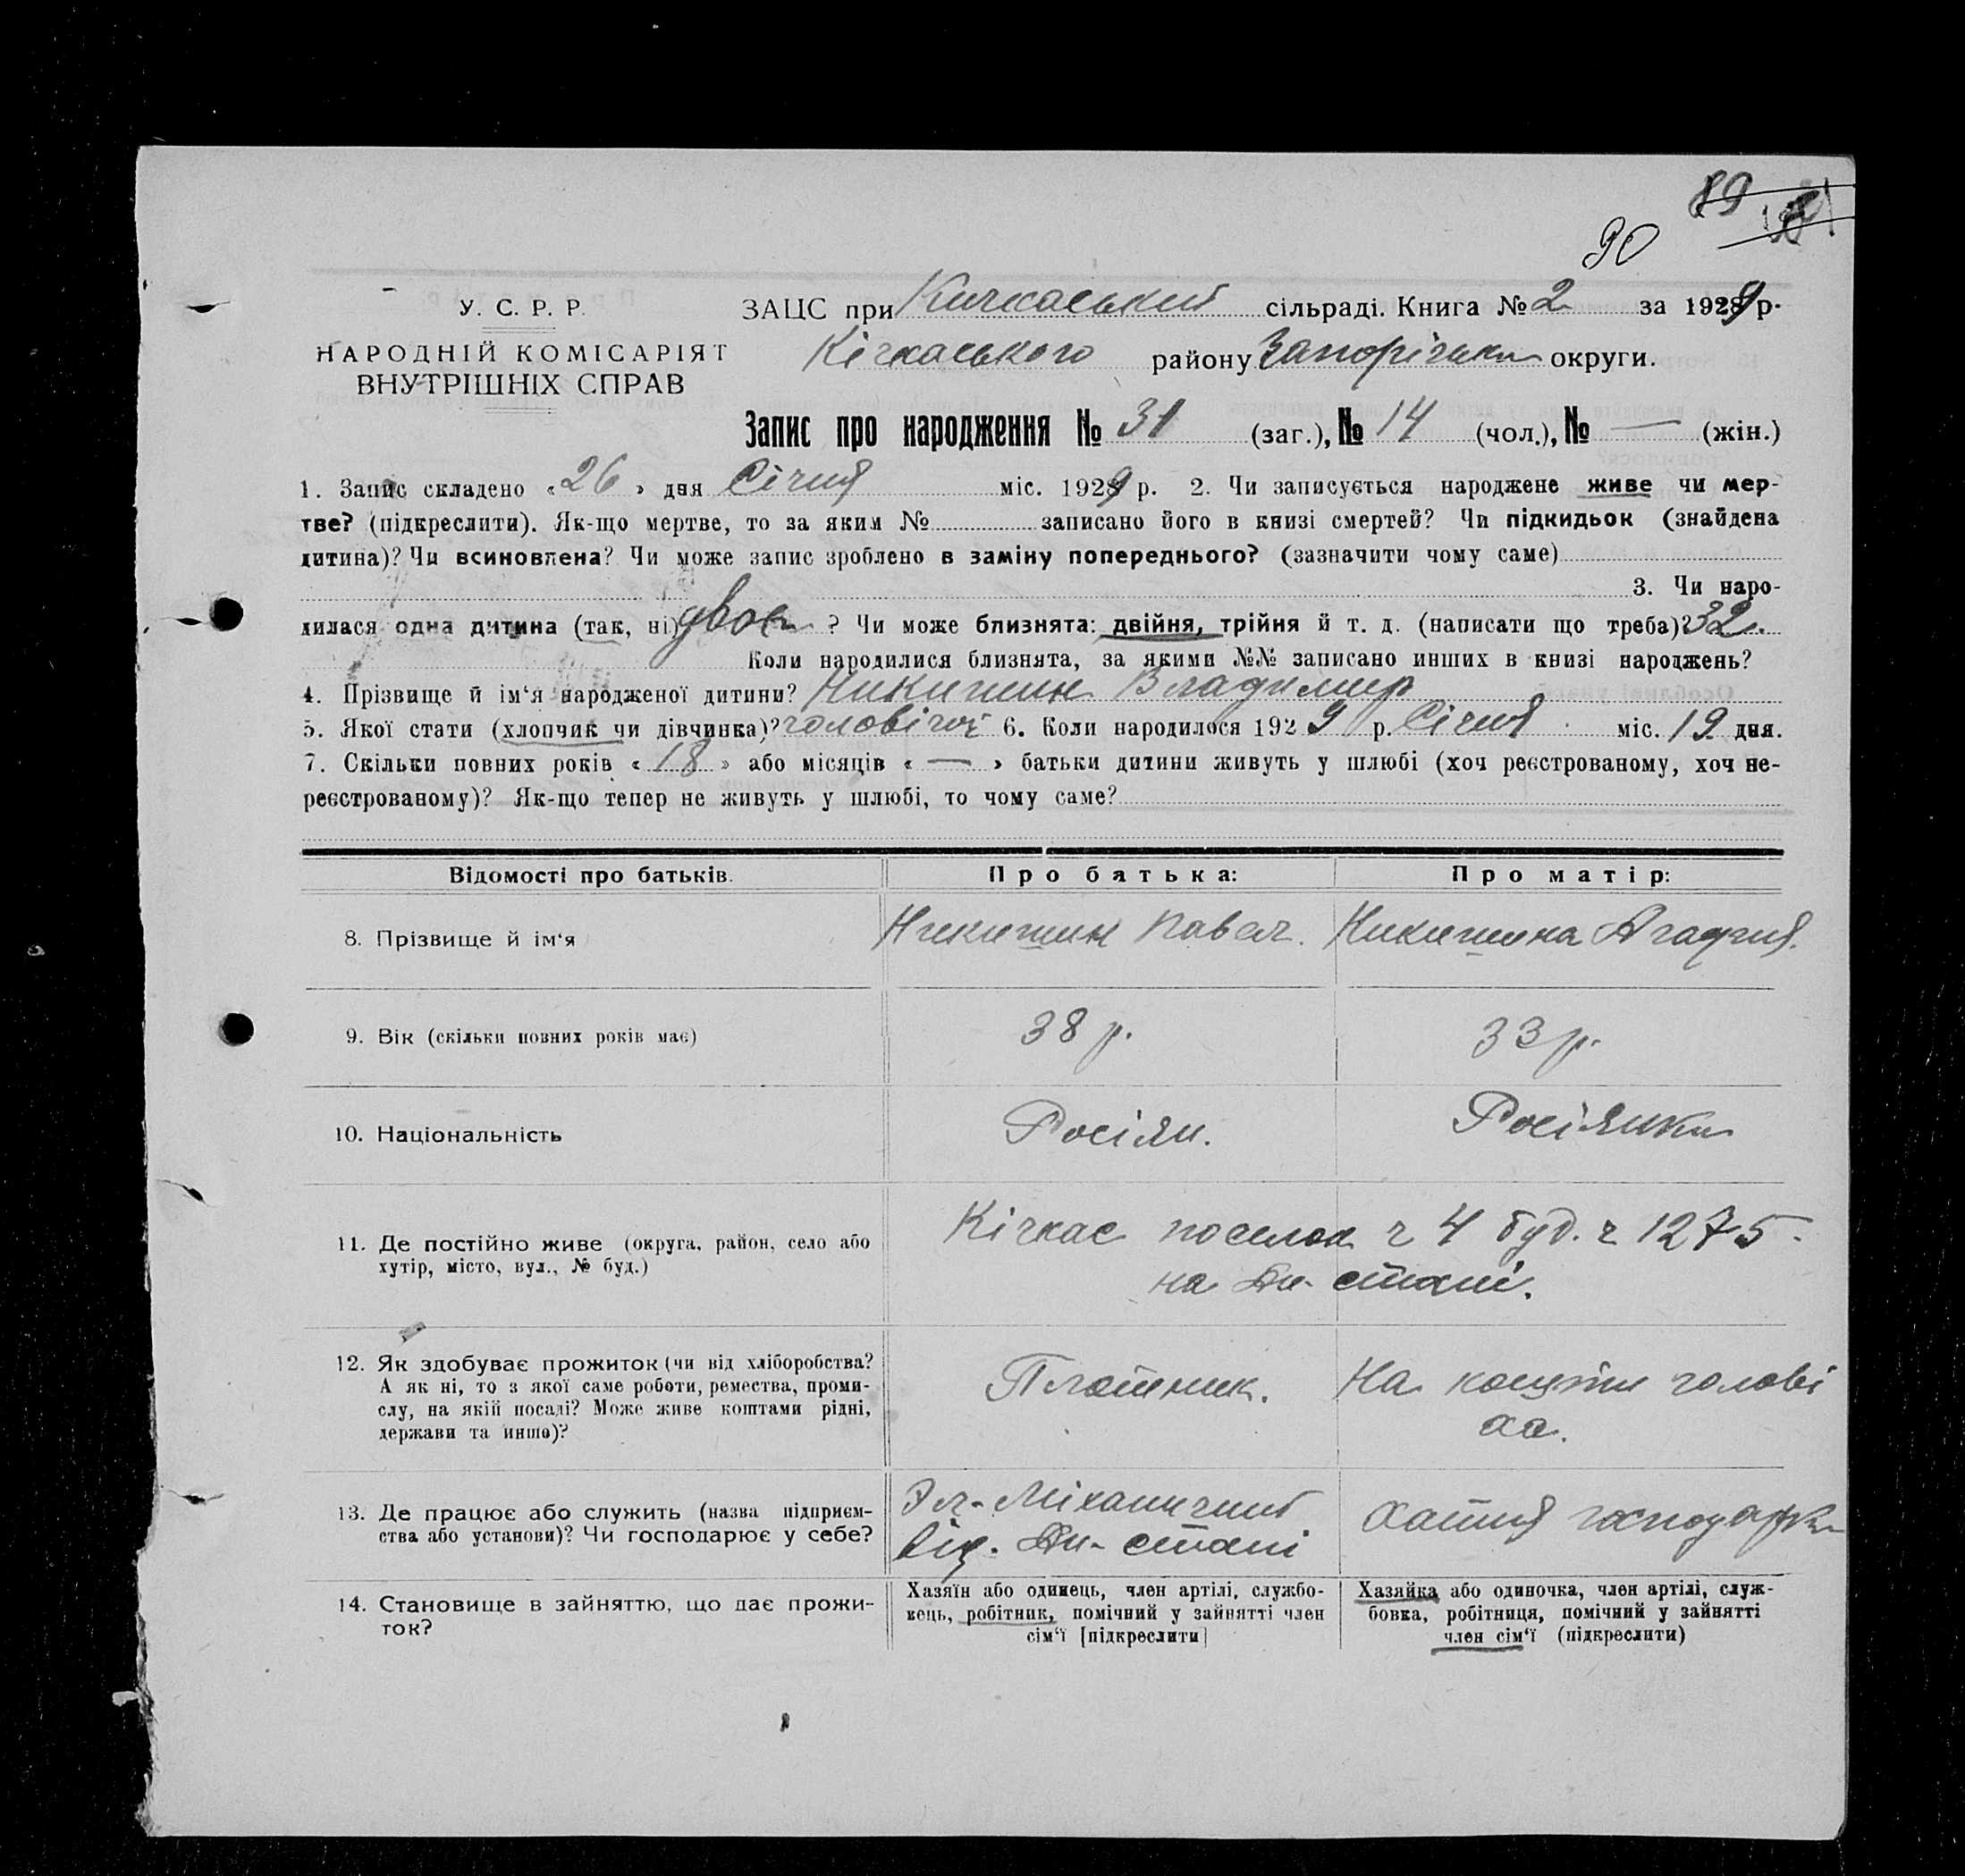 89
90
У. С. Р. Р.
НАРОДНІЙ КОМІСАРІЯТ
ВНУТРІШНІХ СПРАВ
ЗАЦС при Кичкаський сільраді. Книга № 2 за 1929 р.
Кічкаського району Запоріжськ округи.
Запис про народження № 31 (заг.), № 14 (чол.), № — (жін.)
1. Запис складено «26» дня Січня міс. 1929 р. 2. Чи записується народжене живе чи мер-
тве? (підкреслити). Як-що мертве, то за яким № записано його в книзі смертей? Чи підкидьок (знайдена
дитина)? Чи всиновлена? Чи може запис зроблено в заміну попереднього? (зазначити чому саме)
3. Чи наро-
дилася одна дитина (так, ні) двоє ? Чи може близнята: двійня, трійня й т. д. (написати що треба)? 32.
Коли народилися близнята, за якими №№ записано инших в книзі народжень?
4. Прізвище й ім‘я народженої дитини? Никишин Владимир
5. Якої стати (хлопчик чи дівчинка)? чоловічої 6. Коли народилося 1929 р. Січня міс. 19 дня.
7. Скільки повних років «18» або місяців «—» батьки дитини живуть у шлюбі (хоч реєстрованому, хоч не-
реєстрованому)? Як-що тепер не живуть у шлюбі, то чому саме?
Відомості про батьків. Про батька: Про матір:
8. Прізвище й ім‘я Никишин Павел. Никишина Агафия.
9. Вік (скільки повних років має) 38 р. 33 р.
10. Національність Росіян. Росіянка
11. Де постійно живе (округа, район, село або
хутір, місто, вул., № буд.)
Кічкас поселок ч 4 буд. ч 1275.
на Дн. стані.
12. Як здобуває прожиток (чи від хліборобства?
А як ні, то з якої саме роботи, ремества, проми-
слу, на якій посаді? Може живе коштами рідні,
держави та инше)?
Плотник.
На кошти чолові
ка.
13. Де працює або служить (назва підприєм-
ства або установи)? Чи господарює у себе?
Эл-Міханичний
від. Дн-стані
Хатня господарка
14. Становище в зайняттю, що дає прожи-
ток?
Хазяїн або одинець, член артілі, службо-
вець, робітник, помічний у зайнятті член
сім‘ї [підкреслити]
Хазяйка або одиночка, член артілі, служ-
бовка, робітниця, помічний у зайнятті
член сім‘ї (підкреслити)